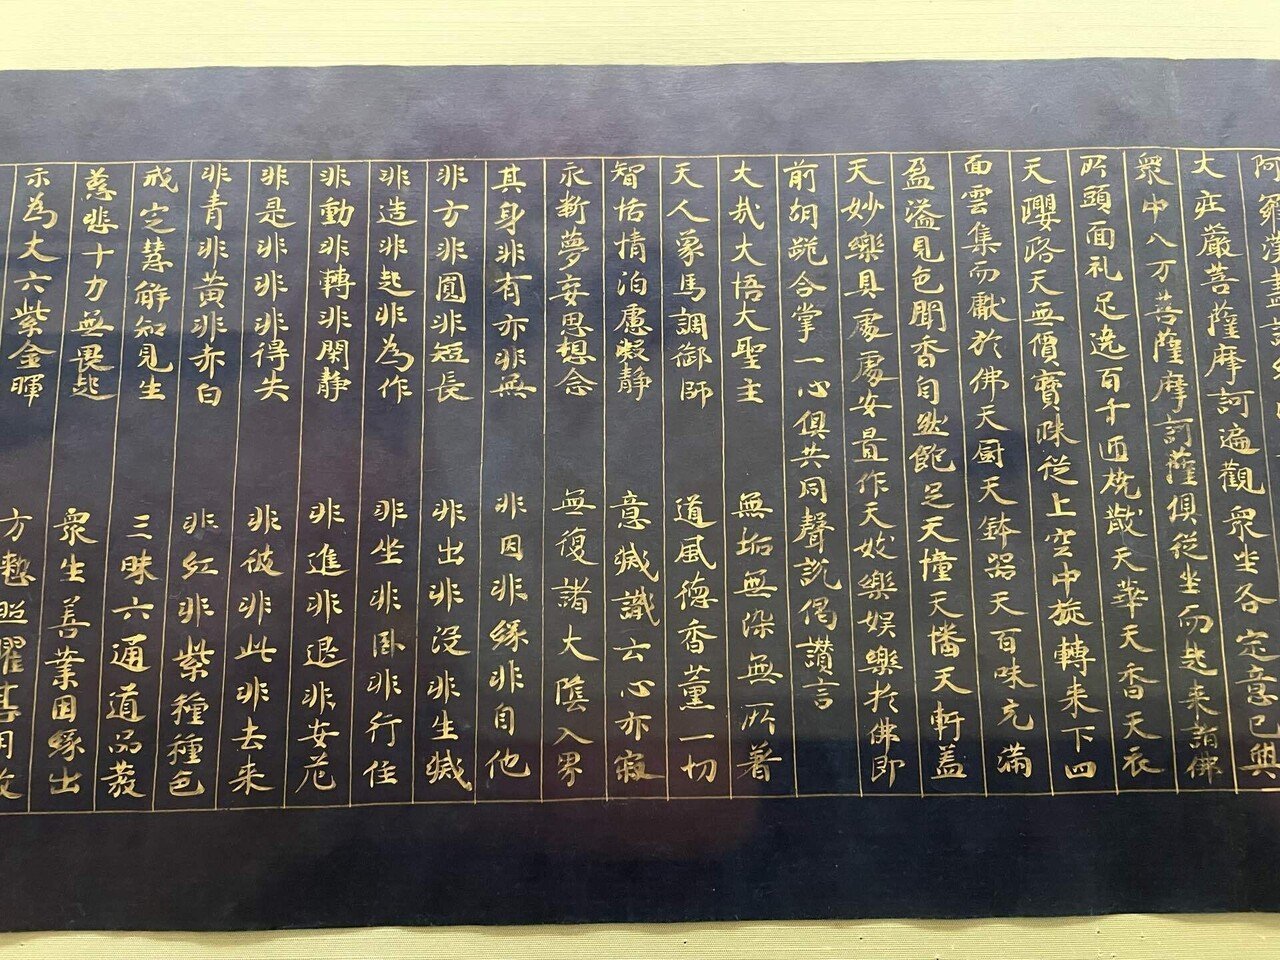 阿羅漢盡諸
大莊嚴菩薩摩訶遍觀衆坐各定意已與
衆中八万菩薩摩訶薩俱從坐而起来詣佛
所頭面礼足遶百千匝燒散天華天香天衣
天瓔珞天無價寶珠從上空中旋轉来下四
面雲集而獻於佛天厨天鉢器天百味充滿
盈溢見色聞香自然飽足天幢天幡天軒盖
天妙樂具處處安置作天妓樂娛樂於佛即
前胡跪合掌一心俱共同聲說偈讚言
大哉大悟大聖主　無垢無染無所著
天人象馬調御師　道風德香薰一切
智恬情泊慮凝静　意滅識亡心亦寂
永斷夢妄思想念　無復諸大陰入界
其身非有亦非無　非因非縁非自他
非方非圓非短長　非出非没非生滅
非造非起非為作　非坐非卧非行住
非動非轉非閑静　非進非退非安危
非是非非非得失　非彼非此非去来
非青非黃非赤白　非紅非紫種種色
戒定慧解知見生　三昧六通道品發
慈悲十力無畏起　衆生善業因縁出
示為丈六紫金暉　方整照曜甚明徹